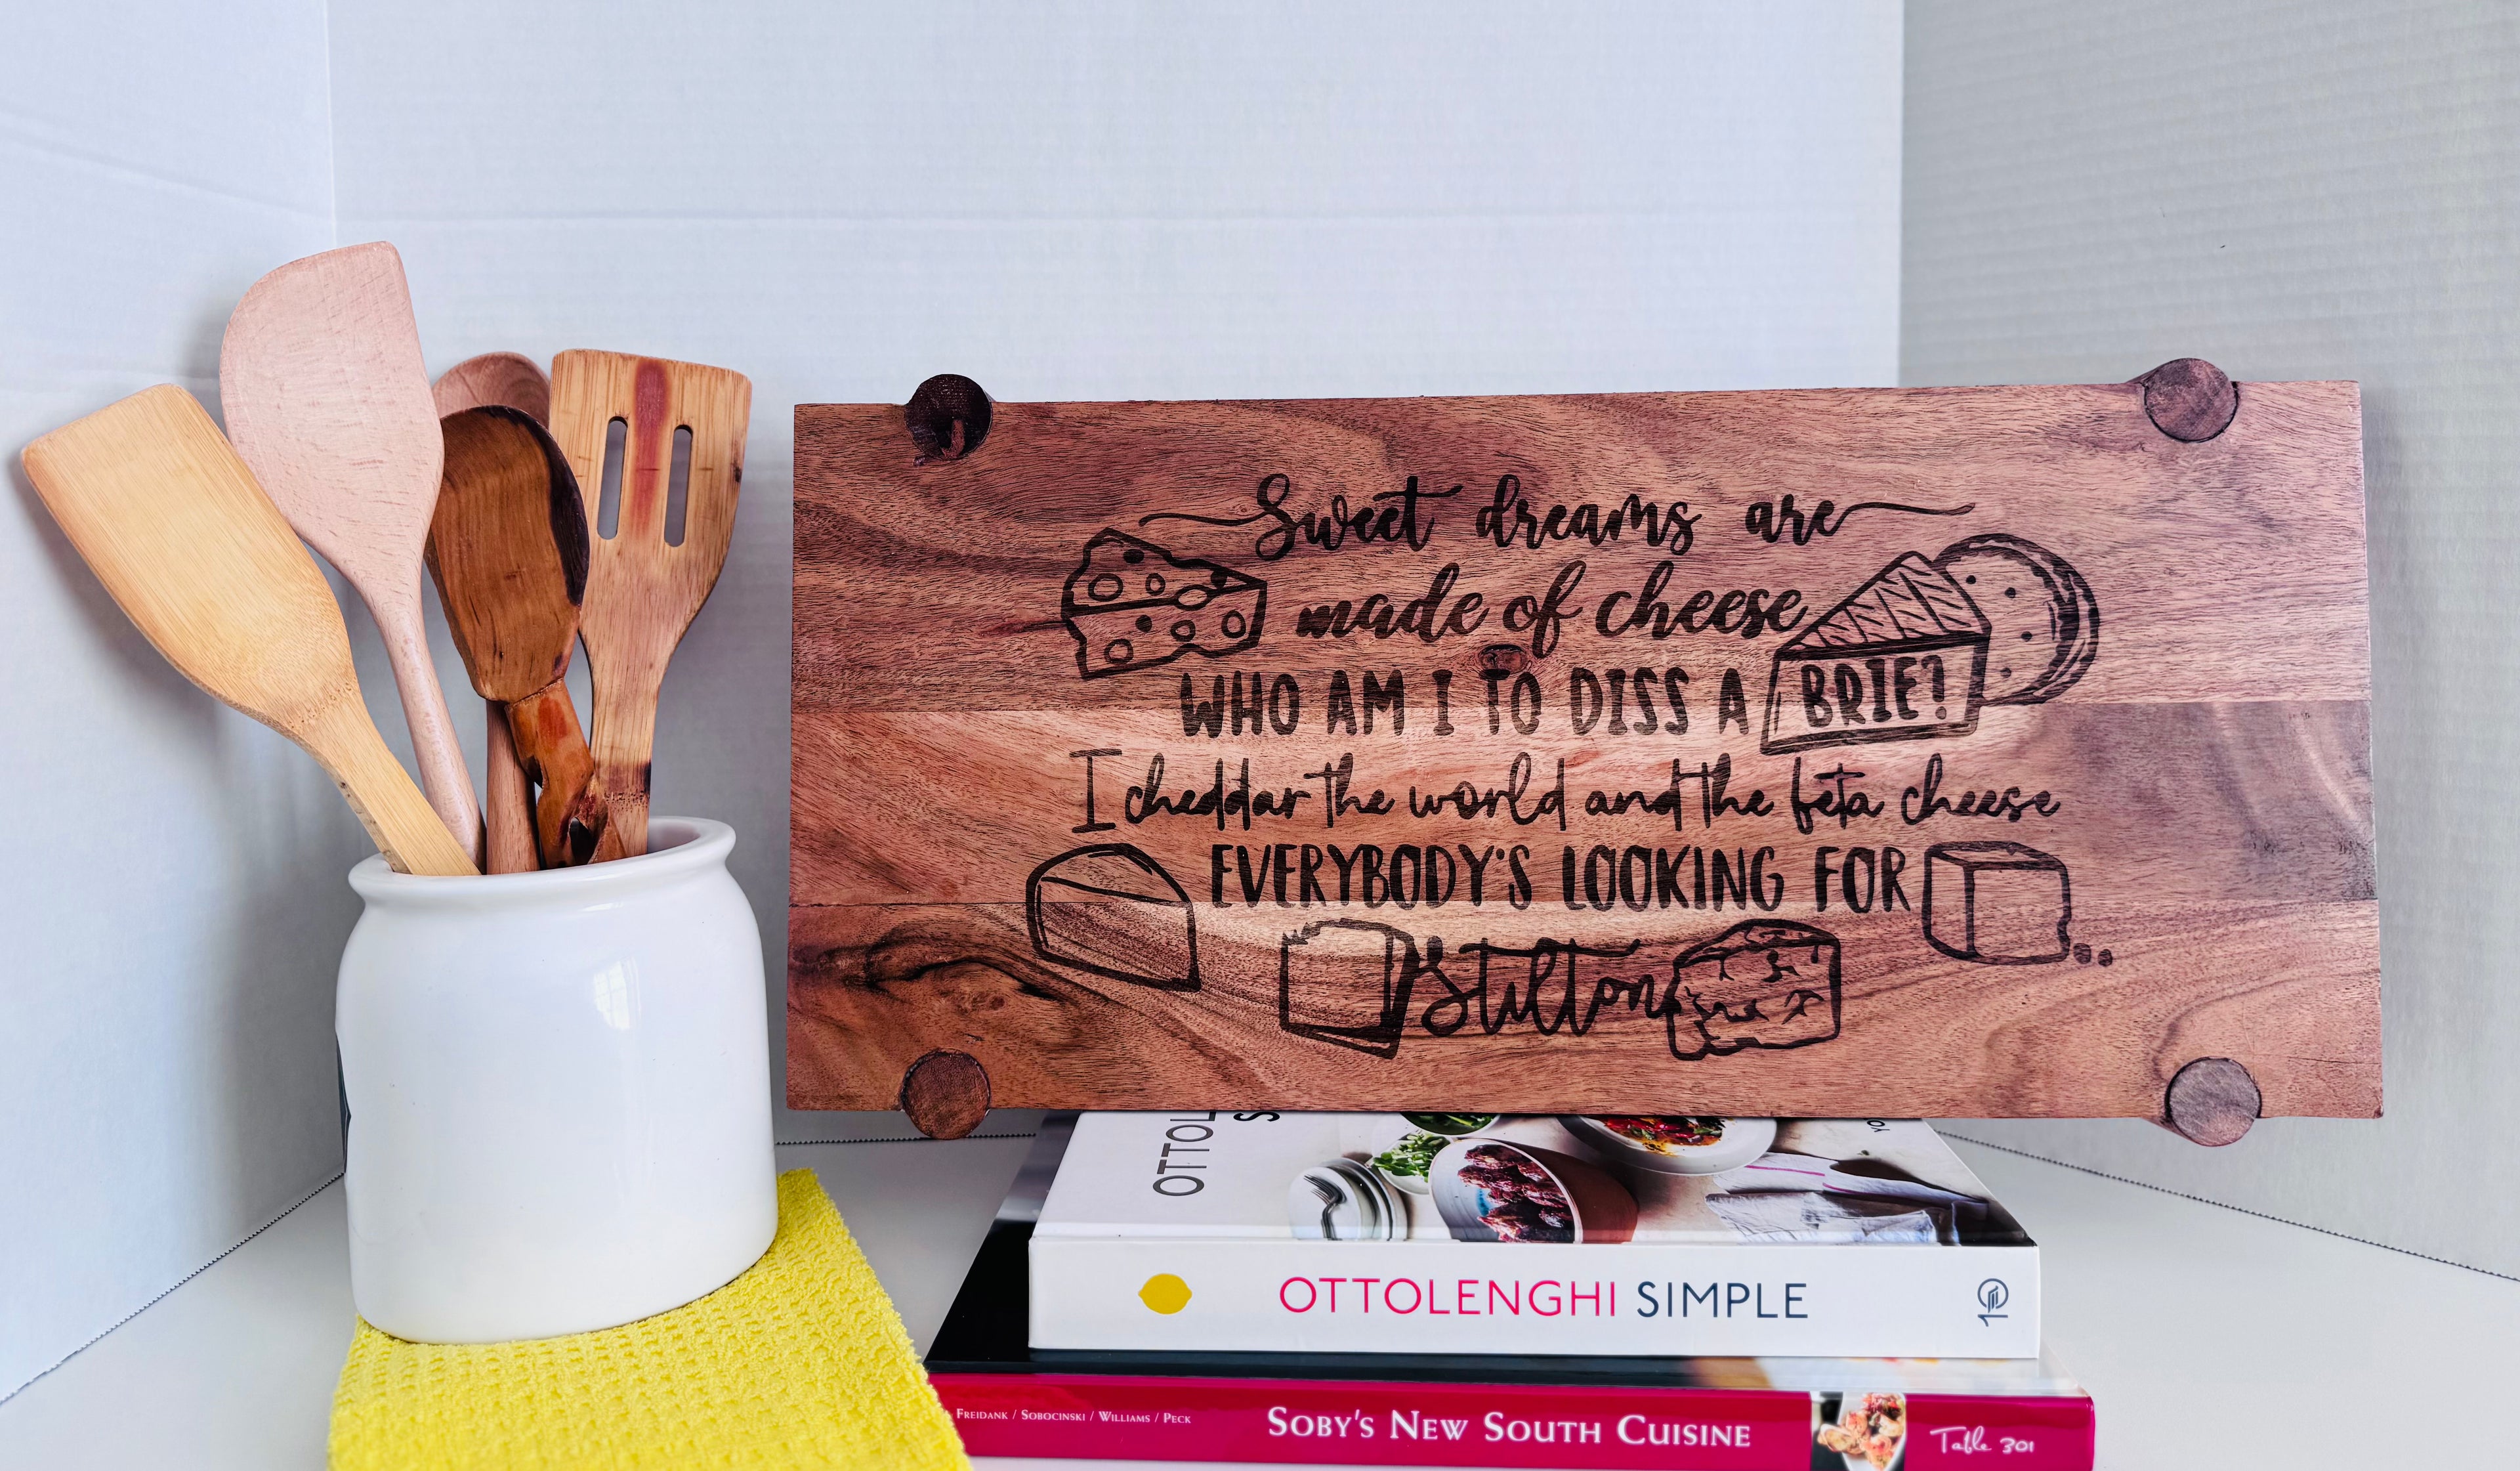 Sweet dreams are
made of cheese
WHO AM I TO DISS A BRIE?
I cheddar the world and the feta cheese
EVERYBODY'S LOOKING FOR
Stilton
OTTOL
S
YO
OTTOLENGHI SIMPLE
FREIDANK / SOBOCINSKI / WILLIAMS / PECK SOBY'S NEW SOUTH CUISINE Table 301